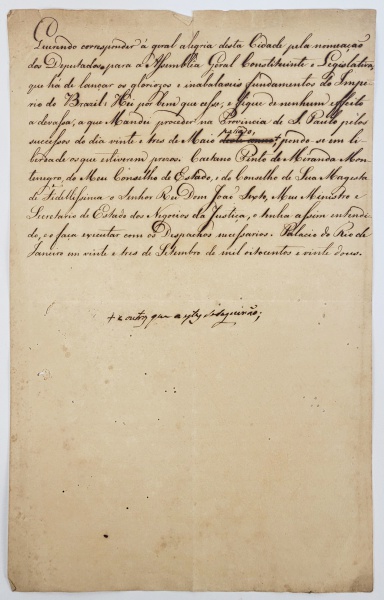 Querendo corresponder á geral alegria desta Cidade pela nomeação
dos Deputados para á Assembléa Geral Constituinte e Legislativa,
que há de lançar os gloriozos e inabalaveis fundamentos do Impe-
rio do Brazil: Hei por bem que cesse, e fique de nenhum effeito
a devassa, a que Mandei proceder na Provincia de S. Paulo pelos
successos do dia vinte e tres de Maio passado, +, pondo-se em li-
berdade os que estiverem prezos. Caetano Pinto de Miranda Mon-
tenegro, do Meu Conselho de Estado, e do Conselho de Sua Magesta-
de Fidellissima o Senhor Rei Dom João Sexto, Meu Ministro e
Secretario de Estado dos Negocios da Justiça, o tenha assim entendi-
do, e o faça executar com os Despachos necessarios. Palacio do Rio de
Janeiro em vinte e tres de Setembro de mil oitocentos e vinte dous.
+ e outros que a estes se seguirão;